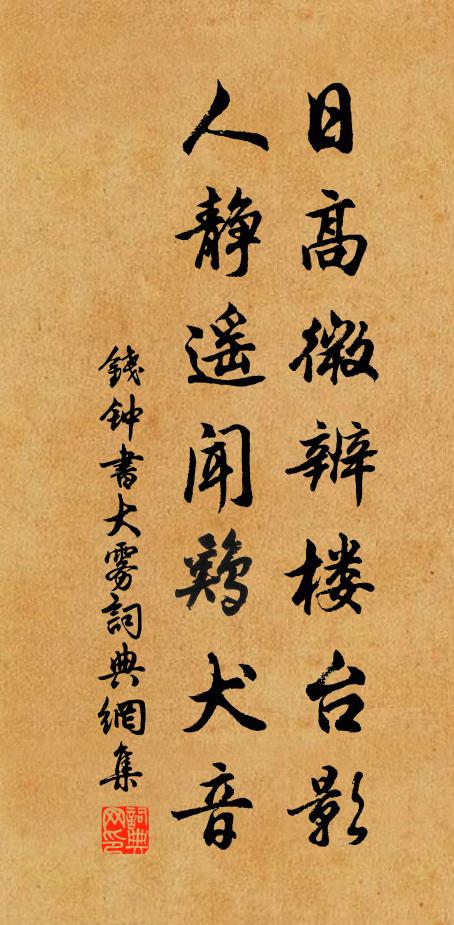 日高微辨楼台影
人静遥闻鸡犬音
錢钟書大雾詞典網集
詞典网印